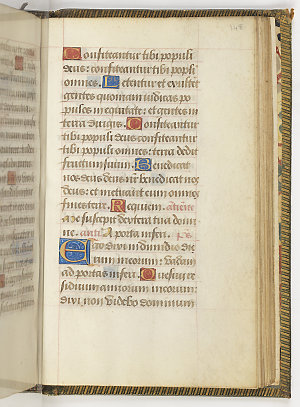 Confiteantur tibi populi
deus: confiteantur tibi populi
omnes. Letentur et exultent
gentes quoniam iudicas po
pulos in equitate: et gentes in
terra dirigis. Confiteantur
tibi populi deus confiteantur
tibi populi omnes: terra dedit
fructum suum. Benedicat
nos deus deus nr̄ benedicat nos
deus: et metuant eum omnes
fines terre. Requiem.
me suscepit dextera tua domi
ne. A porta inferi. ps
Ego dixi in dimidio die
rum meorum: vadam
ad portas inferi. Quesiui re
siduum annorum meorum:
dixi non videbo dominum